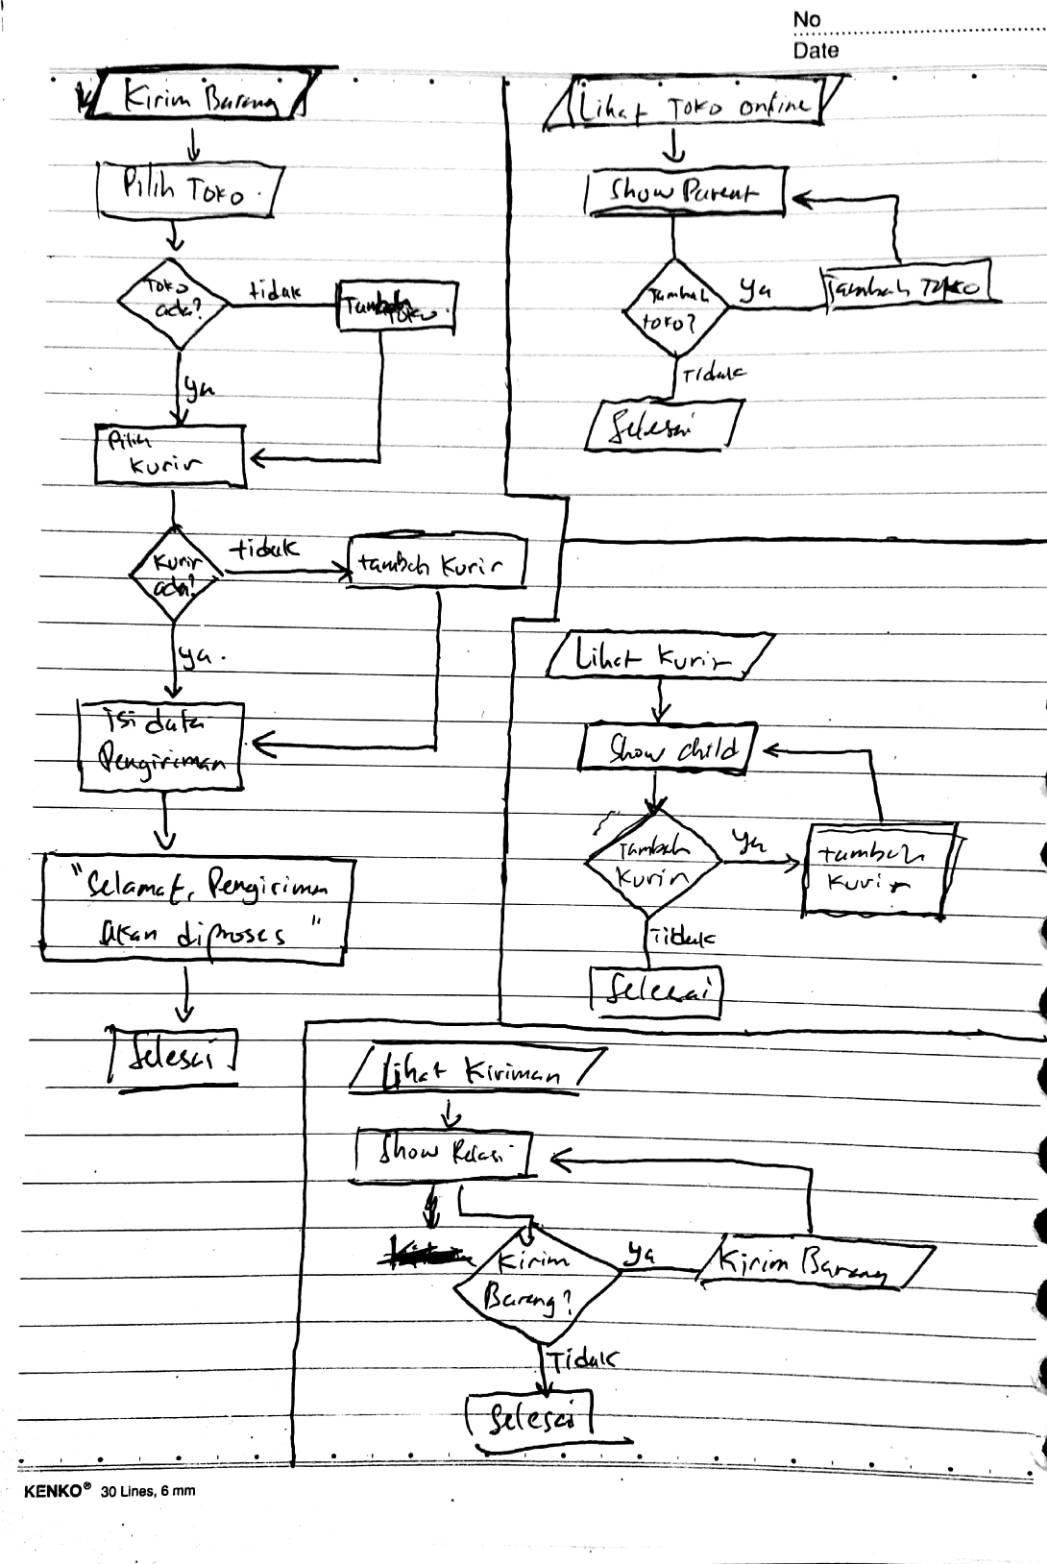 No
Date
Kirim Barang
Pilih Toko.
Toko
ada?
tidak
Tambah
Toko
ya
Pilih
Kurir
Kurir
ada?
tidak
tambah Kurir
ya.
isi data
Pengiriman
"Selamat, Pengiriman
Akan diproses"
Selesai
Lihat Toko online
Show Parent
Tambah
toko?
ya
Tambah Toko
Tidak
Selesai
Lihat Kurir
Show child
Tambah
Kurir
Ya
tambah
Kurir
Tidak
Selesai
Lihat Kiriman
Show Relasi
Kirim
Barang?
ya
Kirim Barang
Tidak
Selesai
KENKO® 30 Lines, 6 mm